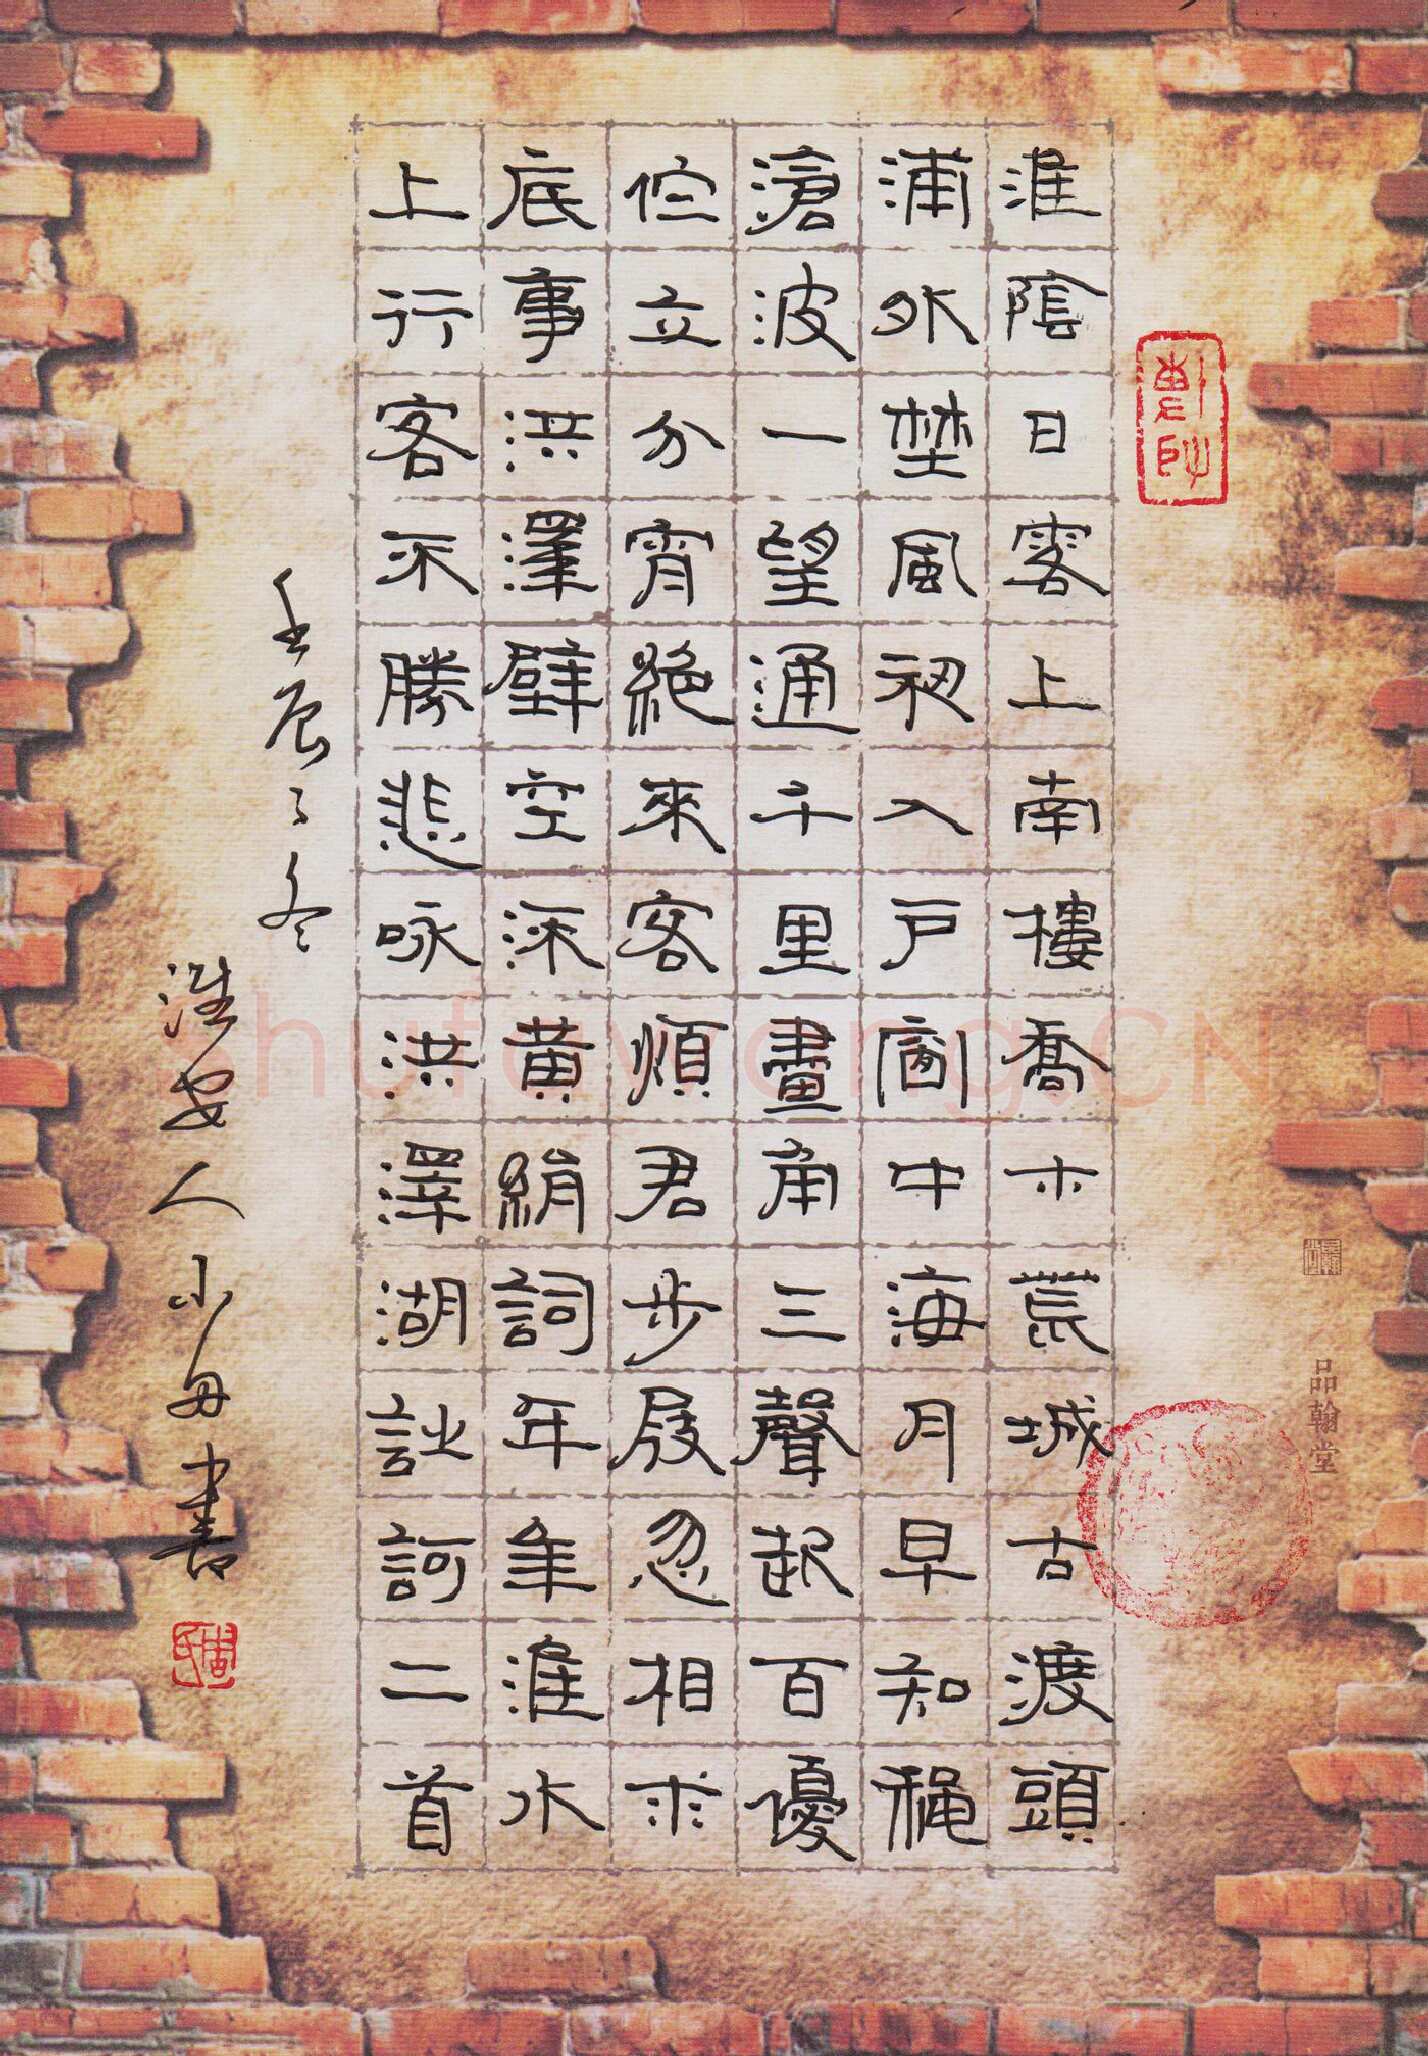 淮陰日客上南樓喬木荒城古渡頭
浦外埜風初入戶窗中海月早知秋
滄波一望通千里畫角三聲起百憂
伫立分宵絕來客煩君步屐忽相求
底事洪澤壁空深黃絹詞年年淮水
上行客不勝悲咏洪澤湖訛訶二首
壬辰之冬
淮安人小毋書
品翰堂
shufawang.CN